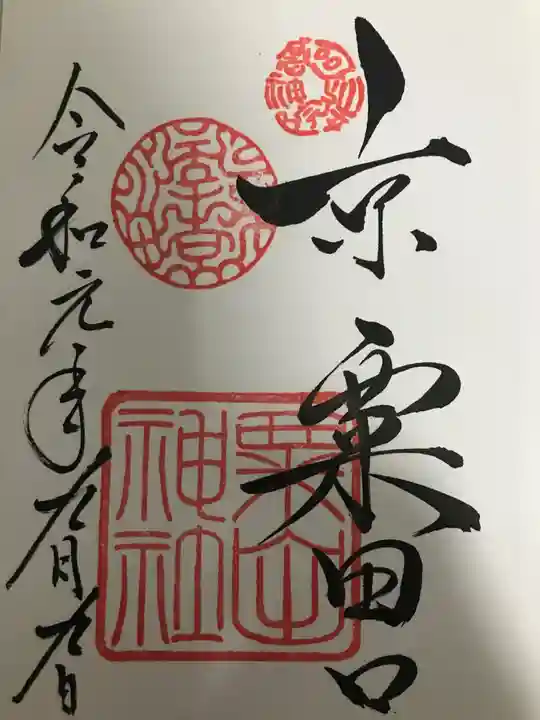 京 粟田口
粟田
神社
令和元年九月九日